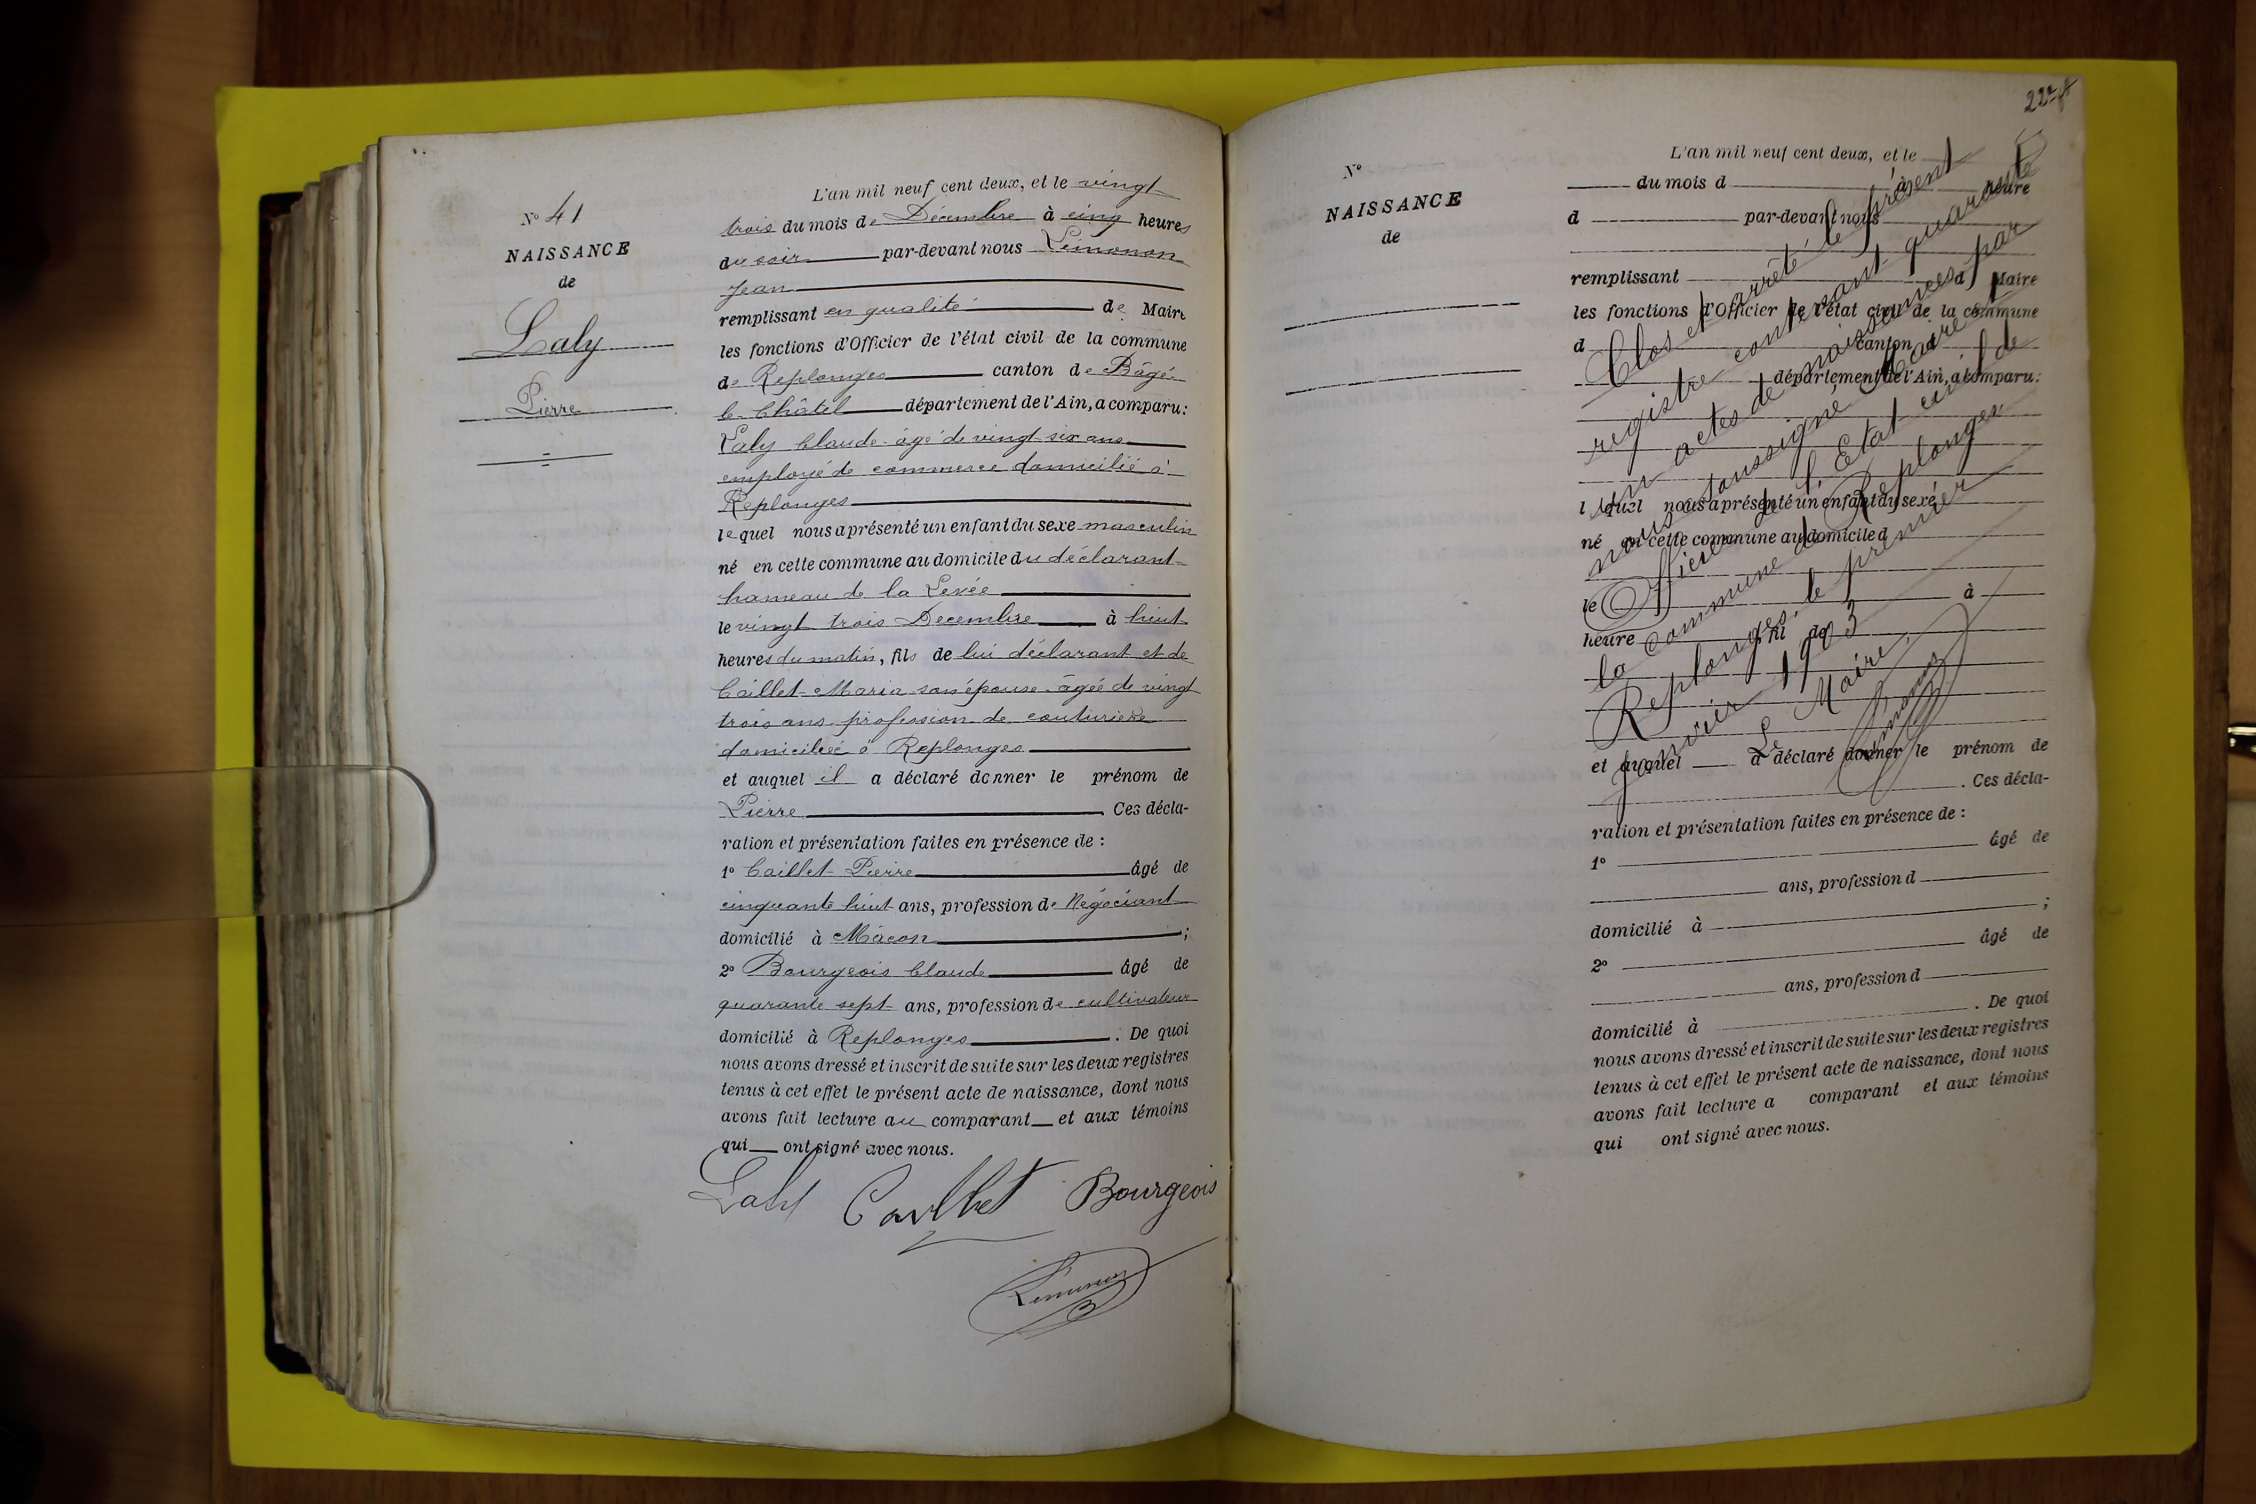 N° 41
NAISSANCE
de
Laly
Pierre
L'an mil neuf cent deux, et le vingt
trois du mois de Décembre à cinq heures
du soir par-devant nous Lémonon
Jean
remplissant en qualité de Maire
les fonctions d'Officier de l'état civil de la commune
de Replonges canton de Bâgé
le Châtel département de l'Ain, a comparu :
Laly Claude âgé de vingt six ans
employé de commerce domicilié à
Replonges
lequel nous a présenté un enfant du sexe masculin
né en cette commune au domicile du déclarant
hameau de la Levée
le vingt trois Décembre à huit
heures du matin, fils de lui déclarant et de
Caillet Maria son épouse âgée de vingt
trois ans profession de couturière
domiciliée à Replonges
et auquel il a déclaré donner le prénom de
Pierre Ces décla-
ration et présentation faites en présence de :
1° Caillet Pierre âgé de
cinquante huit ans, profession de Négociant
domicilié à Mâcon ;
2° Bourgeois Claude âgé de
quarante sept ans, profession de cultivateur
domicilié à Replonges . De quoi
nous avons dressé et inscrit de suite sur les deux registres
tenus à cet effet le présent acte de naissance, dont nous
avons fait lecture au comparant et aux témoins
qui ont signé avec nous.
Laly Caillet Bourgeois
Lémonon
N°
NAISSANCE
de
L'an mil neuf cent deux, et le
du mois d à heure
d par-devant nous
remplissant d Maire
les fonctions d'Officier de l'état civil de la commune
d canton d
département de l'Ain, a comparu :
l quel nous a présenté un enfant du sexe
né en cette commune au domicile d
le à
heure fil de
et auquel a déclaré donner le prénom de
. Ces décla-
ration et présentation faites en présence de :
1° âgé de
ans, profession d
domicilié à ;
2° âgé de
ans, profession d
domicilié à . De quoi
nous avons dressé et inscrit de suite sur les deux registres
tenus à cet effet le présent acte de naissance, dont nous
avons fait lecture a comparant et aux témoins
qui ont signé avec nous.
Clos et arrêté le présent
registre contenant quarante
un actes de naissances par
nous soussigné Maire et
Officier de l'Etat civil de
la commune de Replonges
Replonges, le premier
janvier 1903
Le Maire,
Lémonon